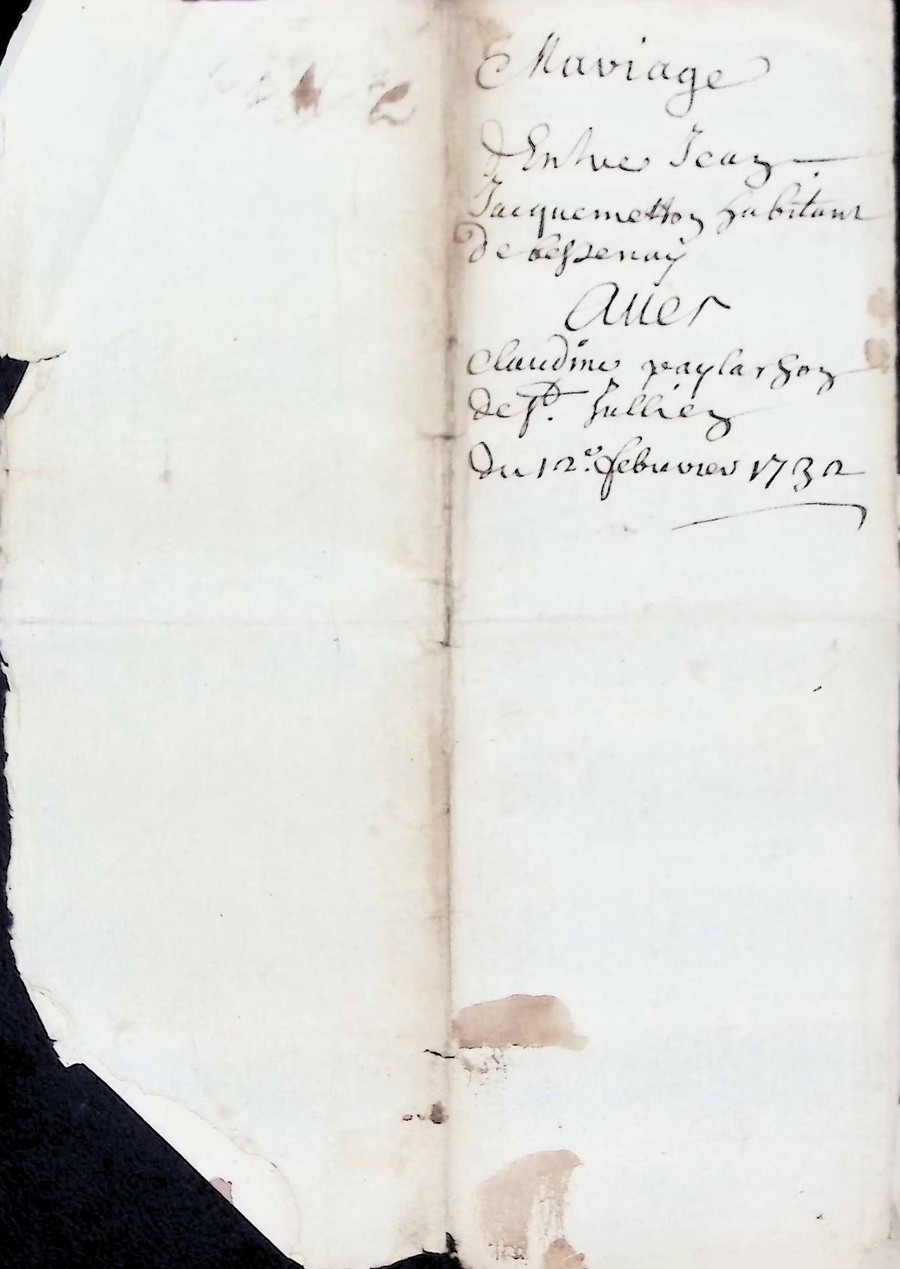 Mariage
d'Entre Jean
Jacquemetton habitant
de bessenay
Auec
claudine paylarhon
de st. Jullien
du 12e. feburier 1732